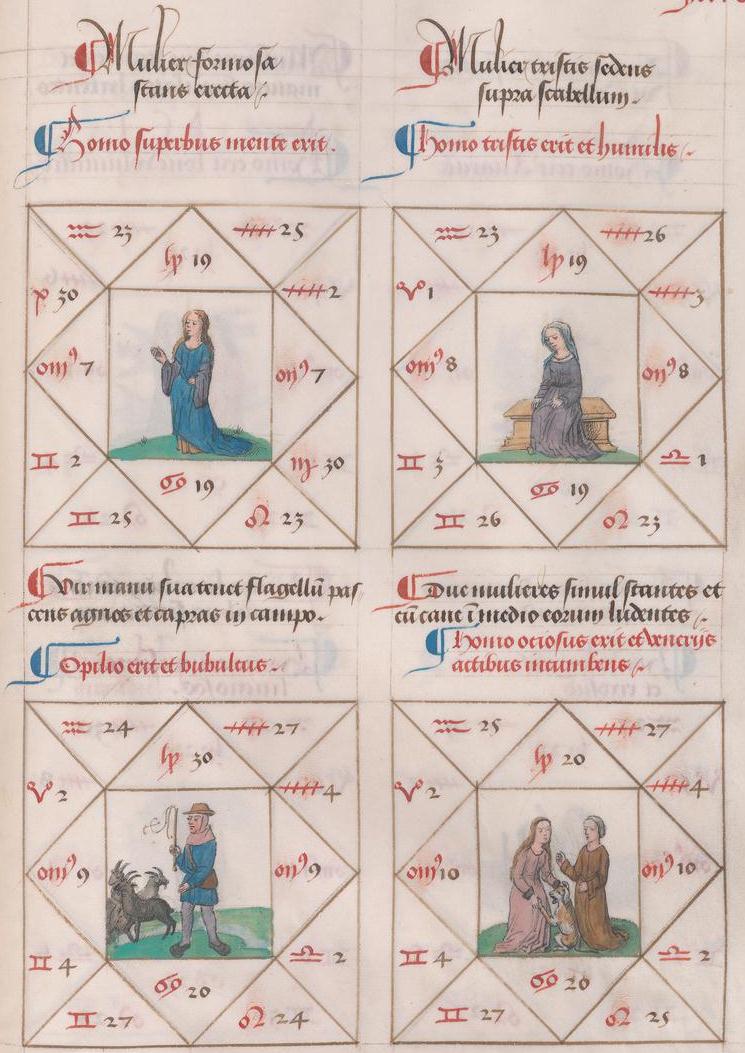 Mulier formosa
stans erecta
Homo superbus mente erit.
♒ 23
25
19
♓ 30
2
7
7
♊ 2
♍ 30
♋ 19
♊ 25
♌ 23
Mulier tristis sedens
supra scabellum.
homo tristis erit et humilis
♒ 23
26
19
♈ 1
3
8
8
♊ 3
♎ 1
♋ 19
♊ 26
♌ 23
Vir manu sua tenet flagellū pas
cens agnos et capras in campo.
Opilio erit et bubulcus.
♒ 24
27
30
♈ 2
4
9
9
♊ 4
♎ 2
♋ 20
♊ 27
♌ 24
Due mulieres simul stantes et
cū cane ī medio eorum ludentes
homo ociosus erit et Venerijs
actibus incumbens
♒ 25
27
20
♈ 2
4
10
10
♊ 4
♎ 2
♋ 20
♊ 27
♌ 25